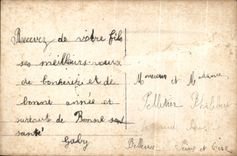 Recevez de votre fils
ses meilleurs voeux
de bonheur et de
bonne année et
surtout de Bonne
santé
Gaby
Monsieur et Madame
Pelletier
Seine et Oise